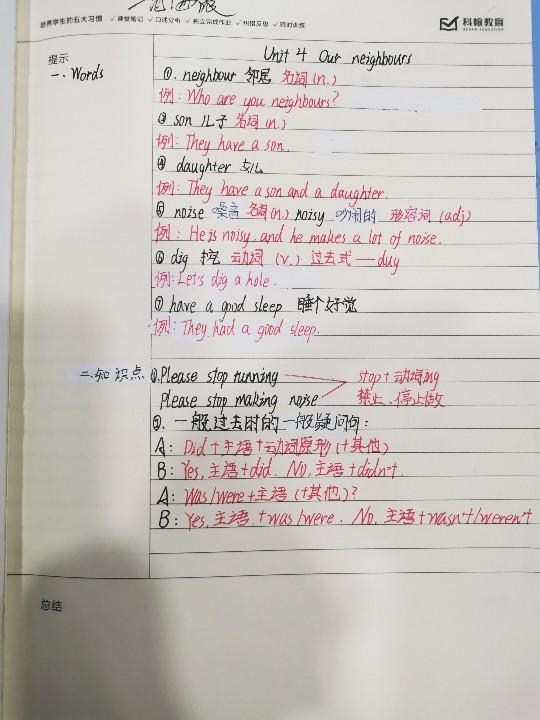 培养学生的五大习惯 ✓课堂笔记 ✓口述分析 ✓独立完成作业 ✓纠错反思 ✓限时训练
科翰教育
提示
Unit 4 Our neighbours
一、Words
①. neighbour 邻居 名词(n.)
例: Who are you neighbours?
② son 儿子 名词(n.)
例: They have a son.
④ daughter 女儿
例: They have a son and a daughter.
⑤ noise 噪音 名词(n.) noisy 吵闹的 形容词(adj)
例: He is noisy. and he makes a lot of noise.
⑥ dig 挖 动词(v.) 过去式—dug
例: Let's dig a hole.
⑦ have a good sleep 睡个好觉
例: They had a good sleep.
二、知识点 ①.Please stop running stop+动词ing
Please stop making noise 禁止、停止做
②. 一般过去时的一般疑问句:
A: Did+主语+动词原形(+其他)
B: Yes, 主语+did. No, 主语+didn't.
A: Was/were+主语(+其他)?
B: Yes, 主语+was/were. No, 主语+wasn't/weren't
总结